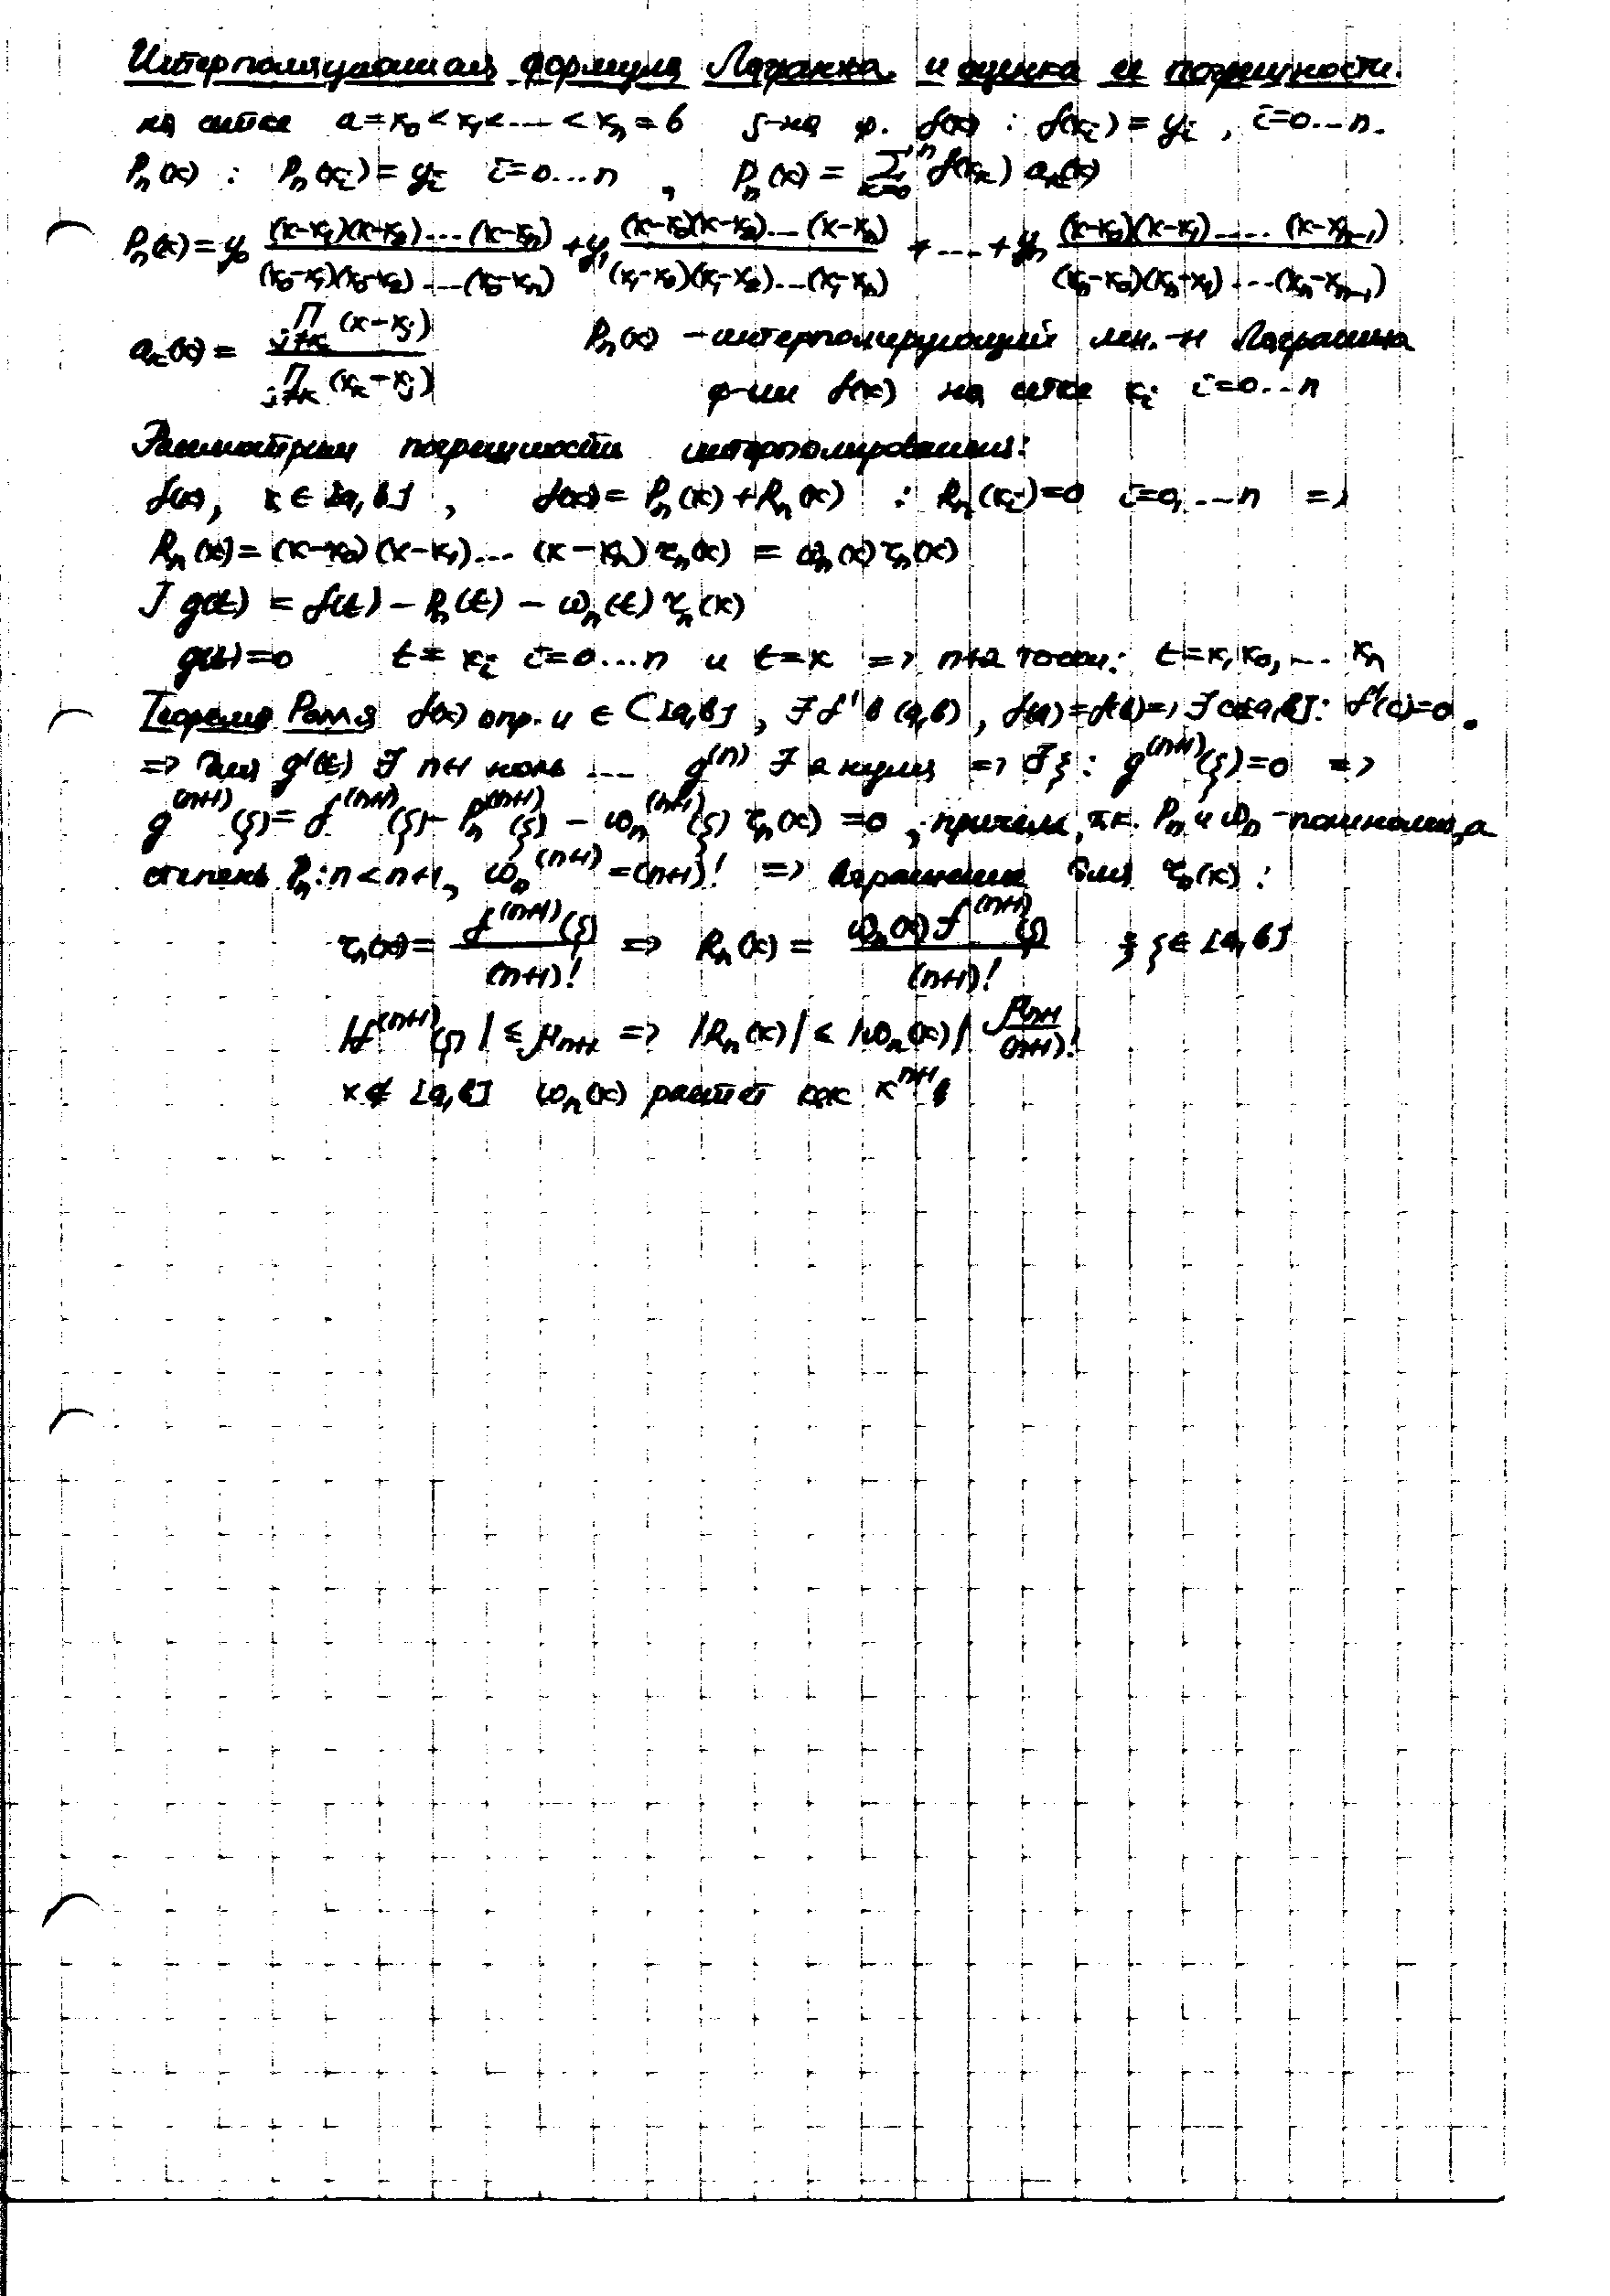 Интерполяционная формула Лагранжа и оценка ее погрешности.
на сетке a=x₀<x₁<...<xₙ=b з-на ф. f(x) : f(xᵢ)=yᵢ, i=0...n.
Pₙ(x) : Pₙ(xᵢ)=yᵢ i=0...n , Pₙ(x) = Σₖ₌₀ⁿ f(xₖ) aₖ(x)
Pₙ(x)=y₀ ((x-x₁)(x-x₂)...(x-xₙ))/((x₀-x₁)(x₀-x₂)...(x₀-xₙ)) + y₁ ((x-x₀)(x-x₂)...(x-xₙ))/((x₁-x₀)(x₁-x₂)...(x₁-xₙ)) + ... + yₙ ((x-x₀)(x-x₁)...(x-xₙ₋₁))/((xₙ-x₀)(xₙ-x₁)...(xₙ-xₙ₋₁))
aₖ(x) = (Π_{j≠k} (x-xⱼ))/(Π_{j≠k} (xₖ-xⱼ)) Pₙ(x) - интерполирующий мн.-н Лагранжа
ф-ии f(x) на сетке xᵢ i=0...n
Рассмотрим погрешности интерполирования:
f(x), x ∈ [a,b] , f(x) = Pₙ(x)+Rₙ(x) : Rₙ(xᵢ)=0 i=0,...n =>
Rₙ(x)=(x-x₀)(x-x₁)...(x-xₙ) rₙ(x) = ωₙ(x) rₙ(x)
J g(t) = f(t) - Pₙ(t) - ωₙ(t) rₙ(x)
g(t)=0 t=xᵢ i=0...n и t=x => n+2 точки: t=x,x₀,...xₙ
Теорема Ролля f(x) опр. и ∈ C[a,b], ∃f' в (a,b), f(a)=f(b)=>∃c∈[a,b]: f'(c)=0.
=> для g'(t) ∃ n+1 ноль ... g⁽ⁿ⁾ ∃ 2 нуля => ∃ξ: g⁽ⁿ⁺¹⁾(ξ)=0 =>
g⁽ⁿ⁺¹⁾(ξ)=f⁽ⁿ⁺¹⁾(ξ)-Pₙ⁽ⁿ⁺¹⁾(ξ)-ωₙ⁽ⁿ⁺¹⁾(ξ) rₙ(x)=0, причем, т.к. Pₙ и ωₙ - полиномы, а
степень Pₙ: n<n+1, ωₙ⁽ⁿ⁺¹⁾=(n+1)! => выражение для rₙ(x):
rₙ(x) = f⁽ⁿ⁺¹⁾(ξ)/(n+1)! => Rₙ(x) = ωₙ(x) f⁽ⁿ⁺¹⁾(ξ)/(n+1)! ∃ ξ ∈ [a,b]
|f⁽ⁿ⁺¹⁾(ξ)| ≤ μₙ₊₁ => |Rₙ(x)| ≤ |ωₙ(x)| μₙ₊₁/(n+1)!
x∉[a,b] ωₙ(x) растет как xⁿ⁺¹